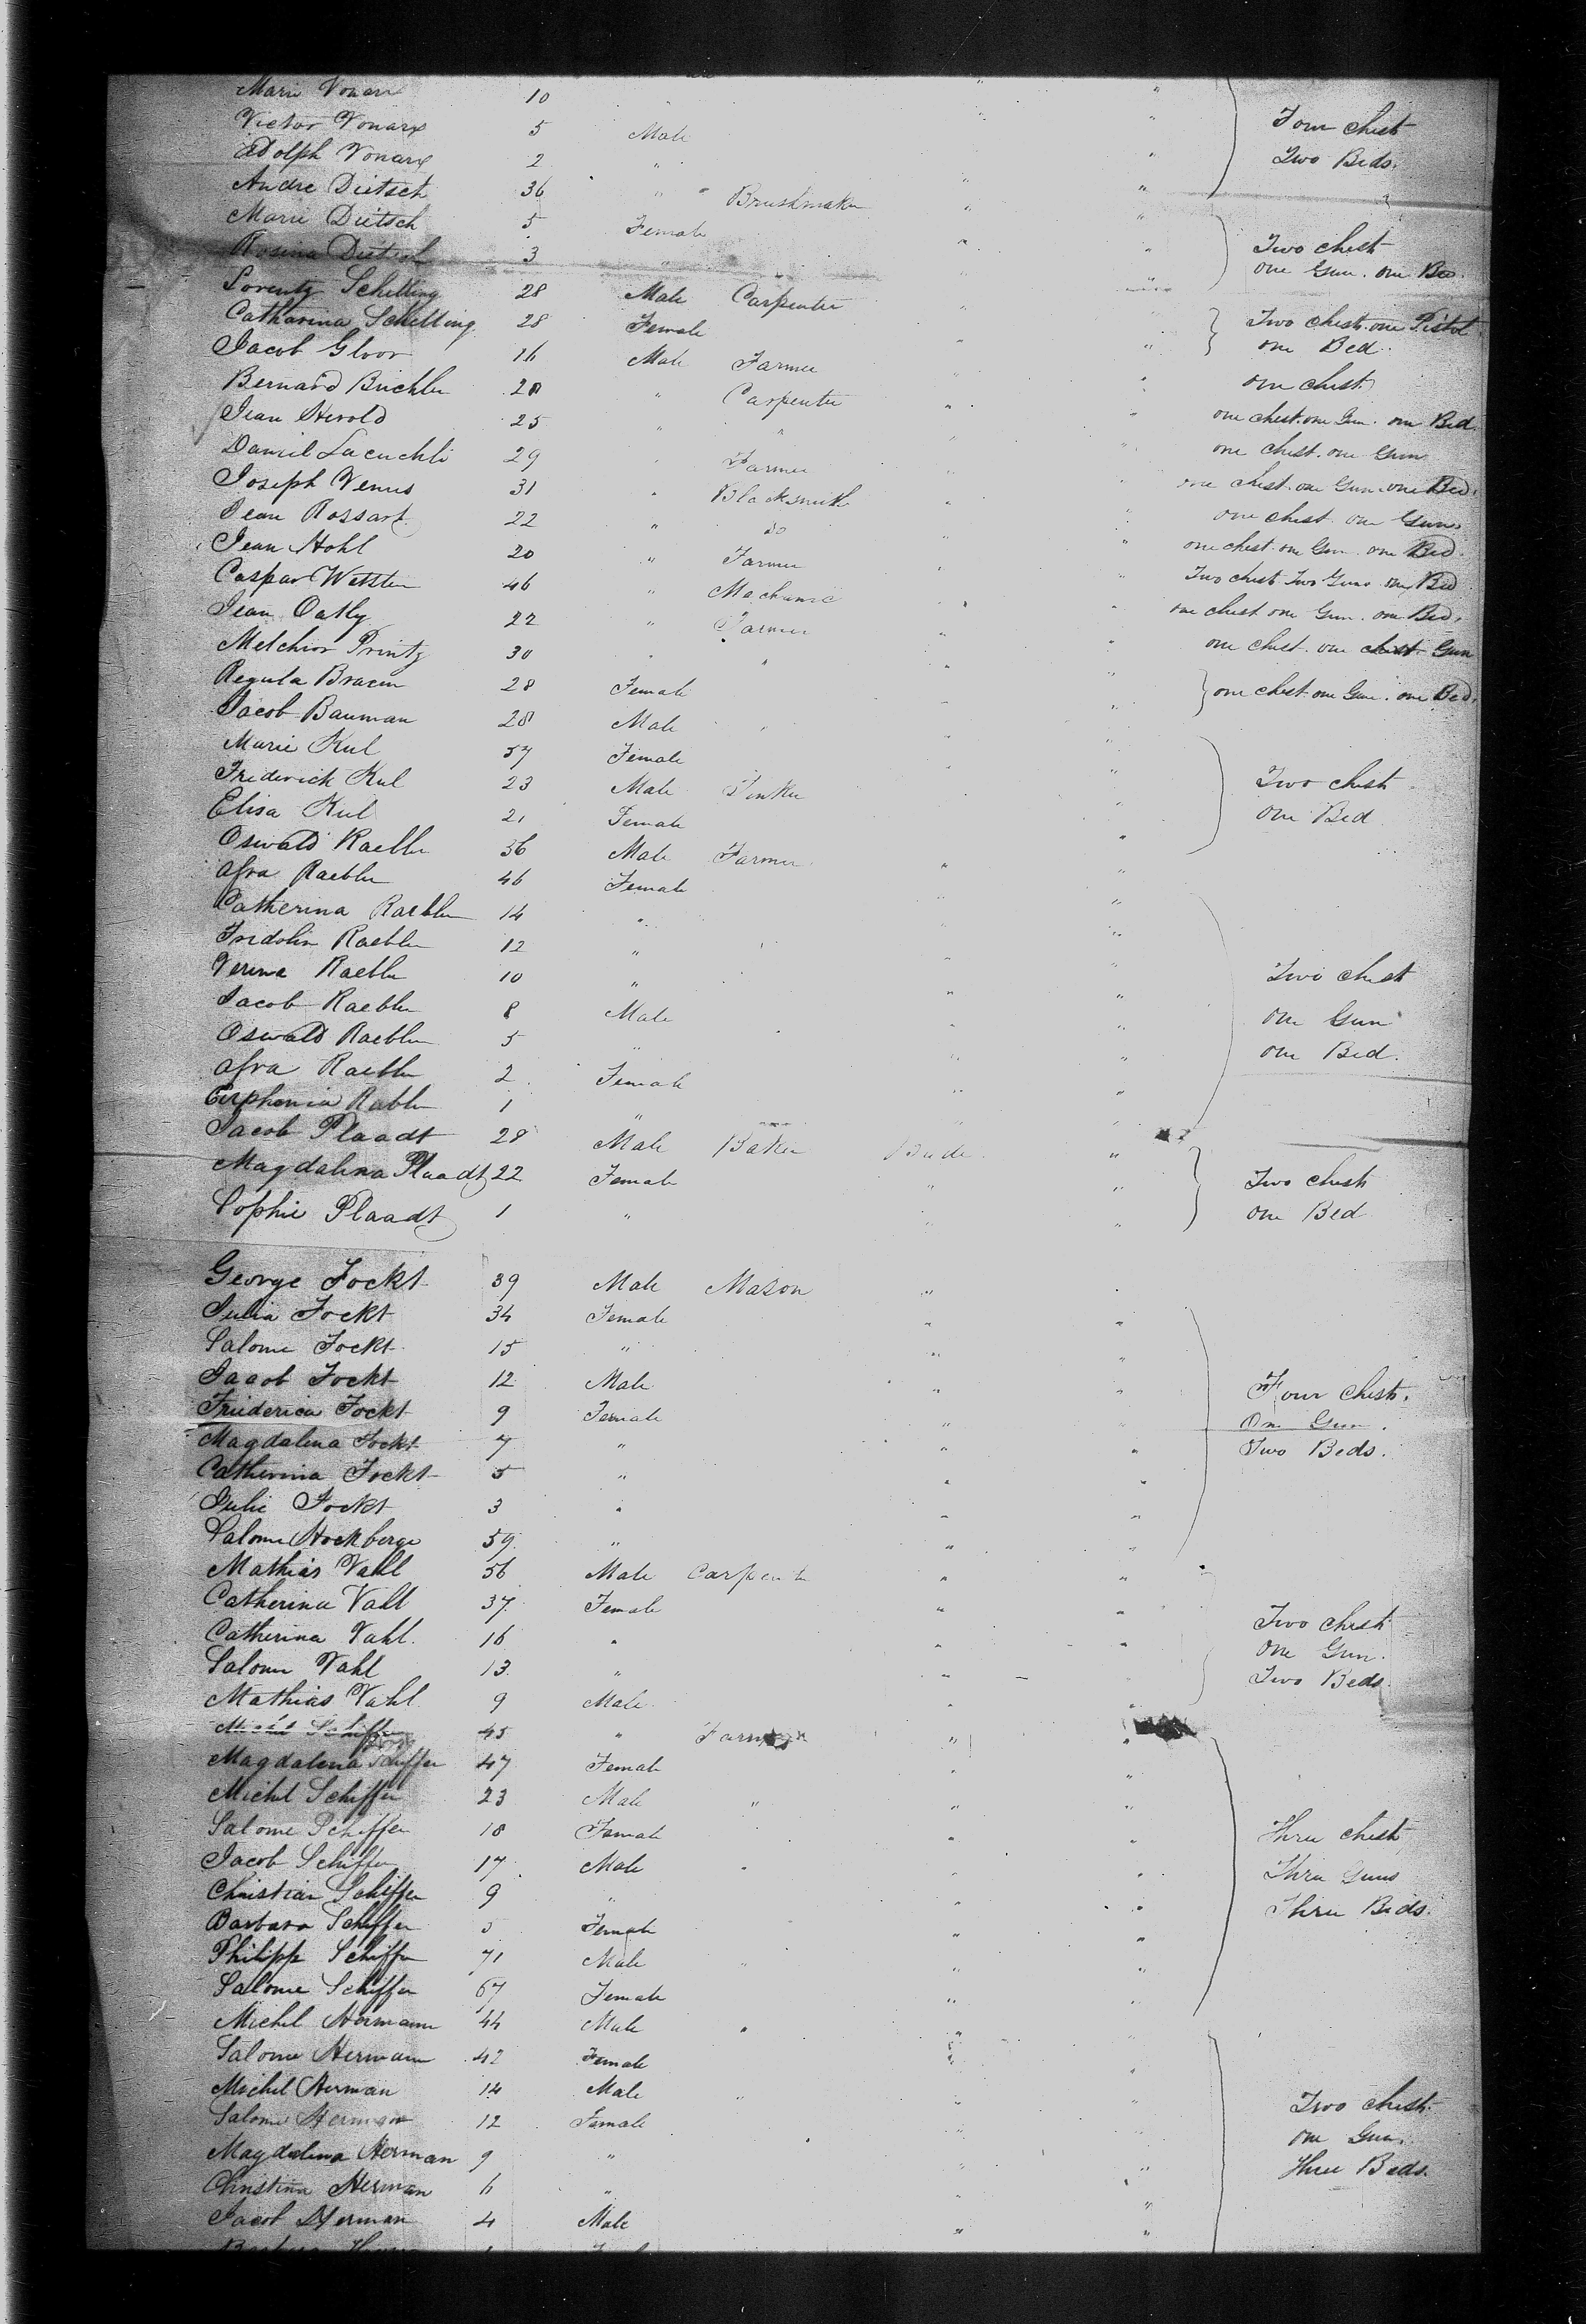 Marie Vonarx 10 " " "
Victor Vonarx 5 Male " Four chest
Adolph Vonarx 2 " " Two Beds.
Andre Dietsch 36 " " Brushmaker " "
Marie Dietsch 5 Female " "
Rosina Dietsch 3 " " " Two chest
one Gun. one Bed.
Lorentz Schilling 28 Male Carpenter "
Catharina Schilling 28 Female " Two chest. one Pistol
Jacob Gloor 16 Male Farmer " " one Bed.
Bernard Buchler 28 " Carpenter " " one chest
Jean Herold 25 " " " " one chest. one Gun. one Bed.
Daniel 29 " Farmer " " one chest. one Gun
Joseph Venus 31 " Blacksmith " " one chest. one Gun. one Bed.
Jean Rossart 22 " do " " one chest one Gun.
Jean Hohl 20 " Farmer " " one chest. one Gun. one Bed.
Caspar 46 " Mechanic " " Two chest Two Guns one Bed
Jean Oatly 22 " Farmer " " one chest one Gun. one Bed.
Melchior Printz 30 " " " " one chest. one chest Gun
Regula 28 Female " " one chest one Gun. one Bed.
Jacob Bauman 28 Male " " "
Marie Kul 57 Female " "
Friderick Kul 23 Male " " Two chest
Elisa Kul 21 Female " one Bed
Oswald Raebler 36 Male Farmer " "
Afra Raebler 46 Female " "
Catherina Raebler 14 " " "
Fridolin Raebler 12 " " "
Verena Raebler 10 " " " Two chest
Jacob Raebler 8 Male " " one Gun
Oswald Raebler 5 " " " one Bed.
Afra Raebler 2 Female " "
Euphenia Rabler 1 " " "
Jacob Plaadt 28 Male Baker "
Magdalena Plaadt 22 Female " " Two chest
Sophie Plaadt 1 " " " one Bed
George Fockt 39 Male Mason "
Julia Fockt 34 Female " "
Salome Fockt 15 " " "
Jacob Fockt 12 Male " " Four chest.
Friederica Fockt 9 Female " " One Gun.
Magdalena Fockt 7 " " " Two Beds.
Catherina Fockt 5 " " "
Julie Fockt 3 " " "
Salome Hockberge 59 " " "
Mathias Vahl 56 Male Carpenter " "
Catherina Vahl 37 Female " " Two chest
Catherina Vahl. 16 " " " One Gun.
Salome Vahl 13 " " " Two Beds.
Mathias Vahl 9 Male " "
Michel Schiffer 45 " Farmer " "
Magdalena Schiffer 47 Female " "
Michel Schiffer 23 Male " " "
Salome Schiffer 18 Female " " Three chest
Jacob Schiffer 17 Male " " " Three Guns
Christian Schiffer 9 " " " Three Beds.
Barbara Schiffer 5 Female " "
Philipp Schiffer 71 Male " " "
Salome Schiffer 67 Female " "
Michel Hermann 44 Male " " "
Salome Hermann 42 Female " "
Michel Herman 14 Male " " " Two chest.
Salome Herman 12 Female " " one Gun.
Magdalena Herman 9 " " " Three Beds.
Christina Herman 6 " " "
Jacob Herman 4 Male " "